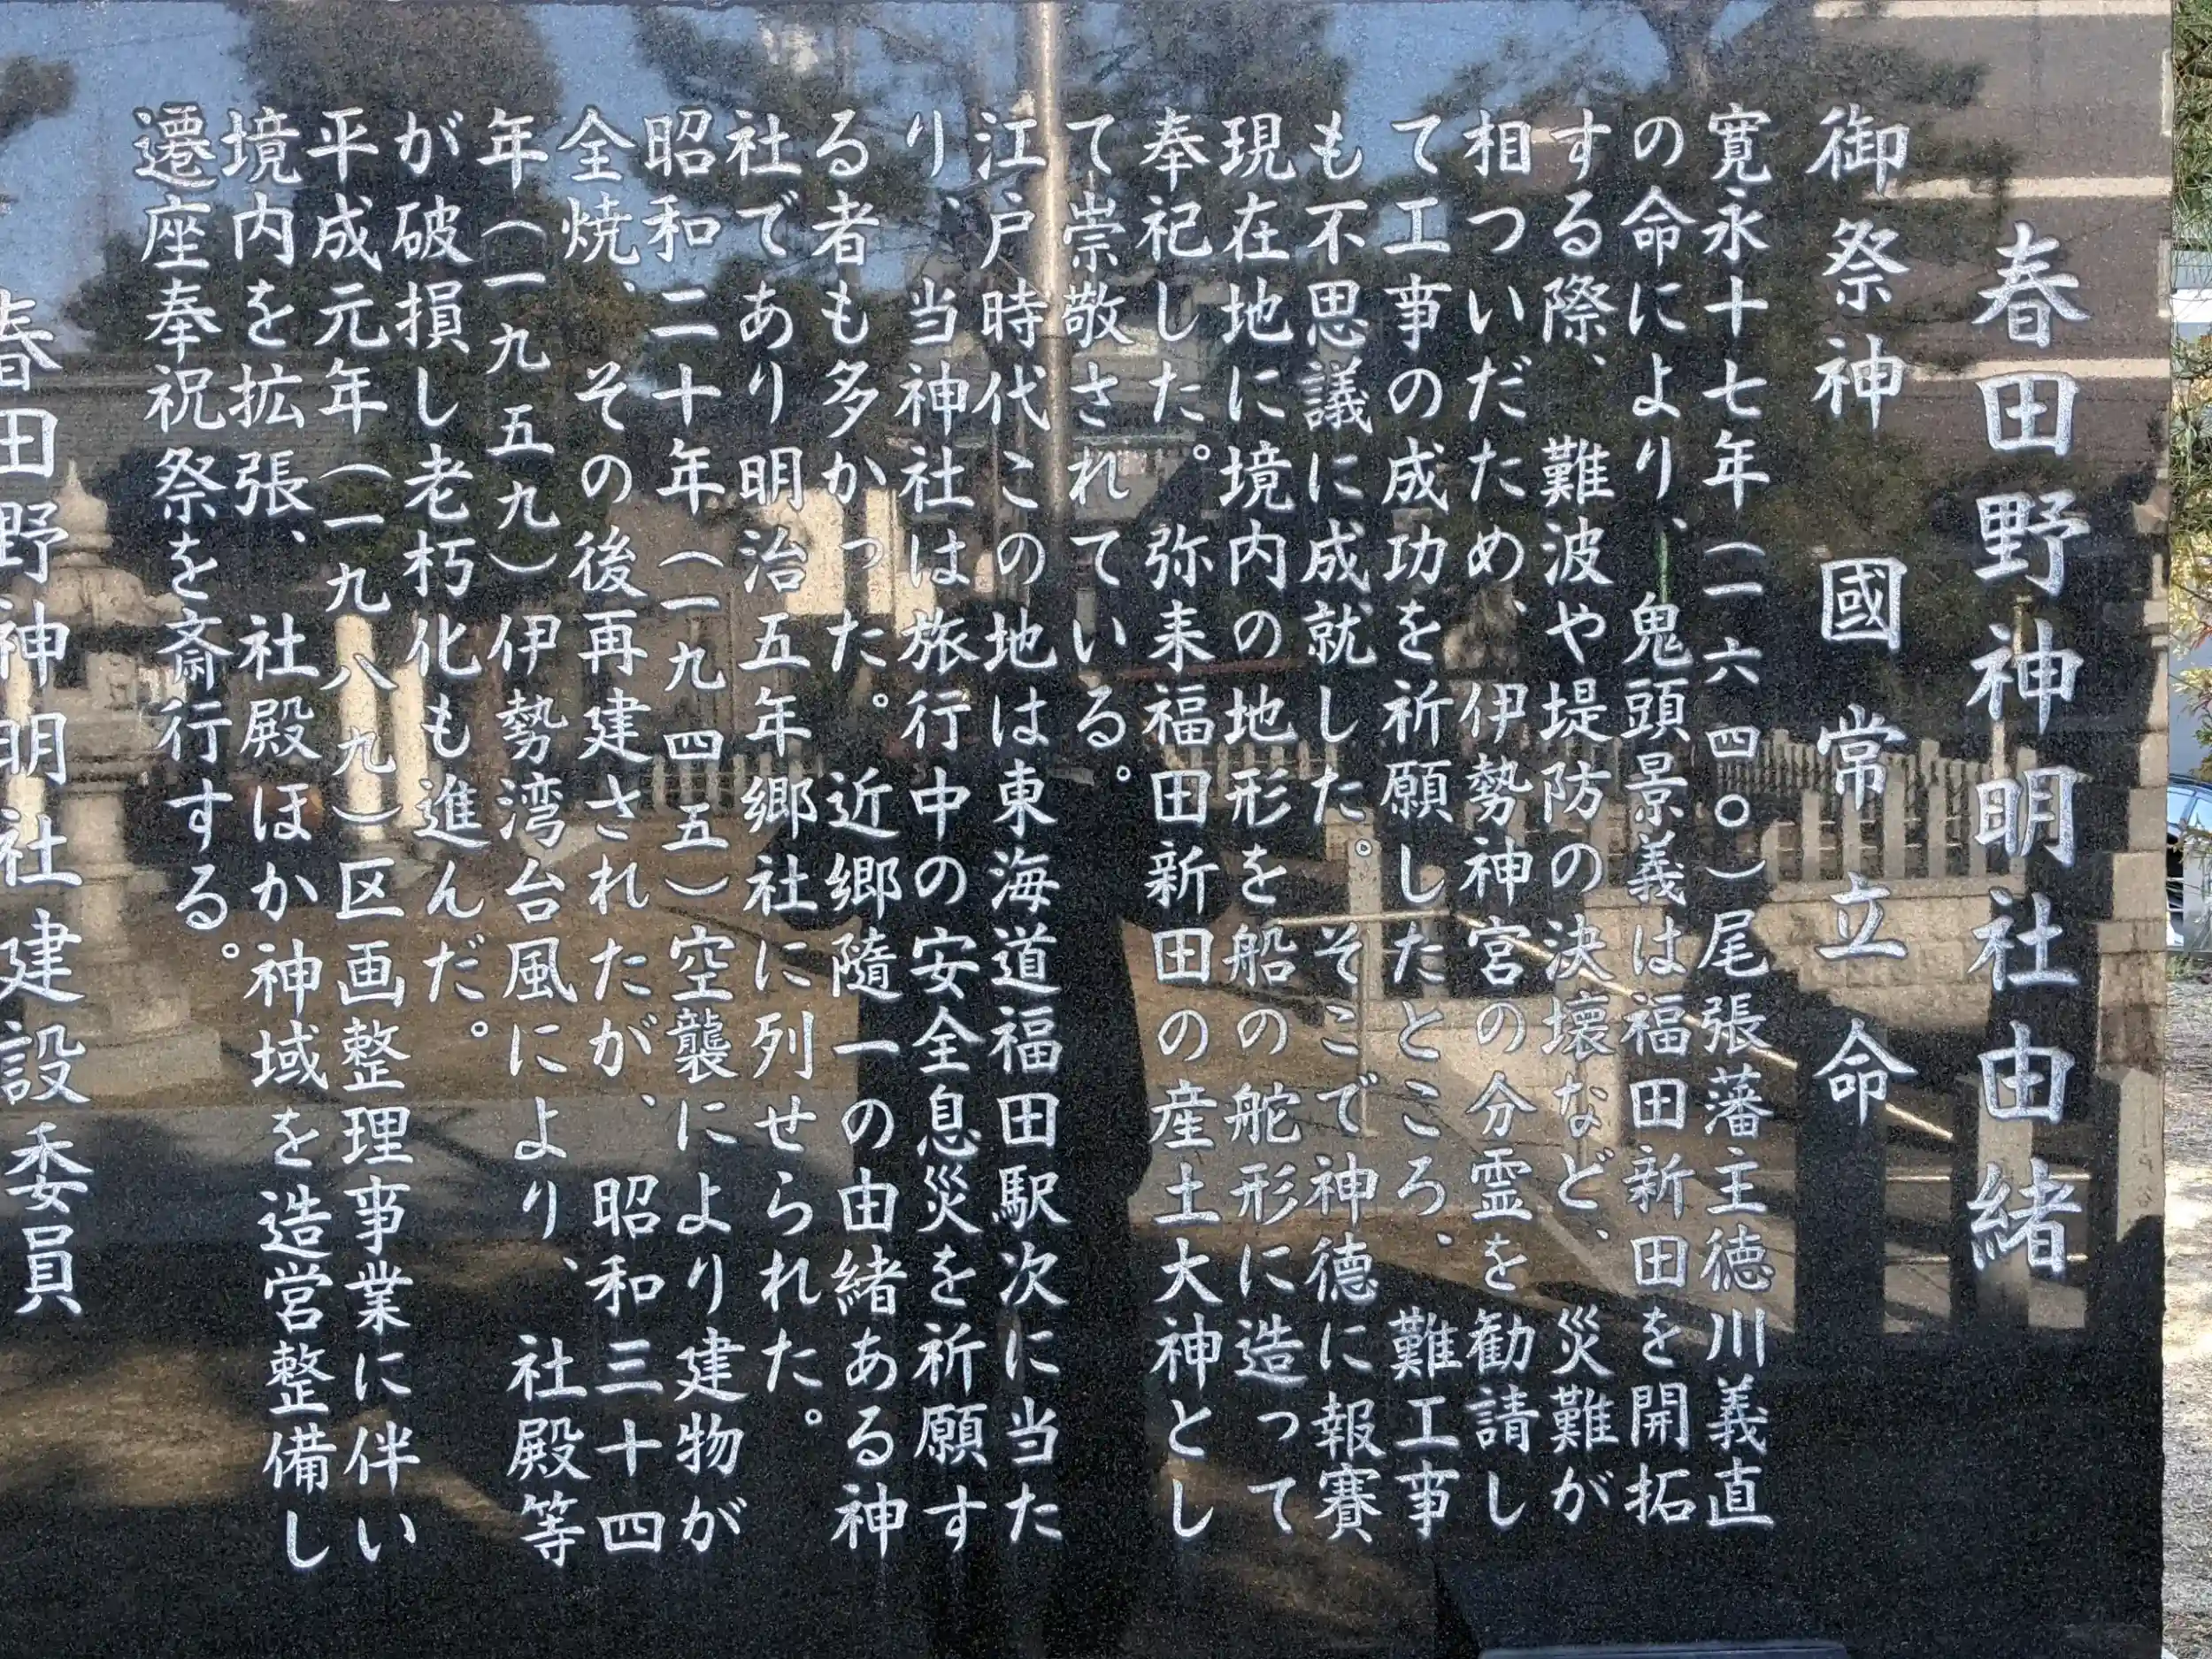 春田野神明社由緒
御祭神 國常立命
寛永十七年（一六四〇）尾張藩主徳川義直
の命により、鬼頭景義は福田新田を開拓
する際、難波や堤防の決壊など、災難が
相ついだため、伊勢神宮の分霊を勧請し
て工事の成功を祈願したところ、難工事
も不思議に成就した。そこで神徳に報賽
現在地に境内の地形を船の舵形に造って
奉祀した。弥来福田新田の産土大神とし
て崇敬されている。
江戸時代この地は東海道福田駅次に当た
り、当神社は旅行中の安全息災を祈願す
る者も多かった。近郷隨一の由緒ある神
社であり明治五年郷社に列せられた。
昭和二十年（一九四五）空襲により建物が
全焼、その後再建されたが、昭和三十四
年（一九五九）伊勢湾台風により、社殿等
が破損し老朽化も進んだ。
平成元年（一九八九）区画整理事業に伴い
境内を拡張、社殿ほか神域を造営整備し
遷座奉祝祭を斎行する。
春田野神明社建設委員